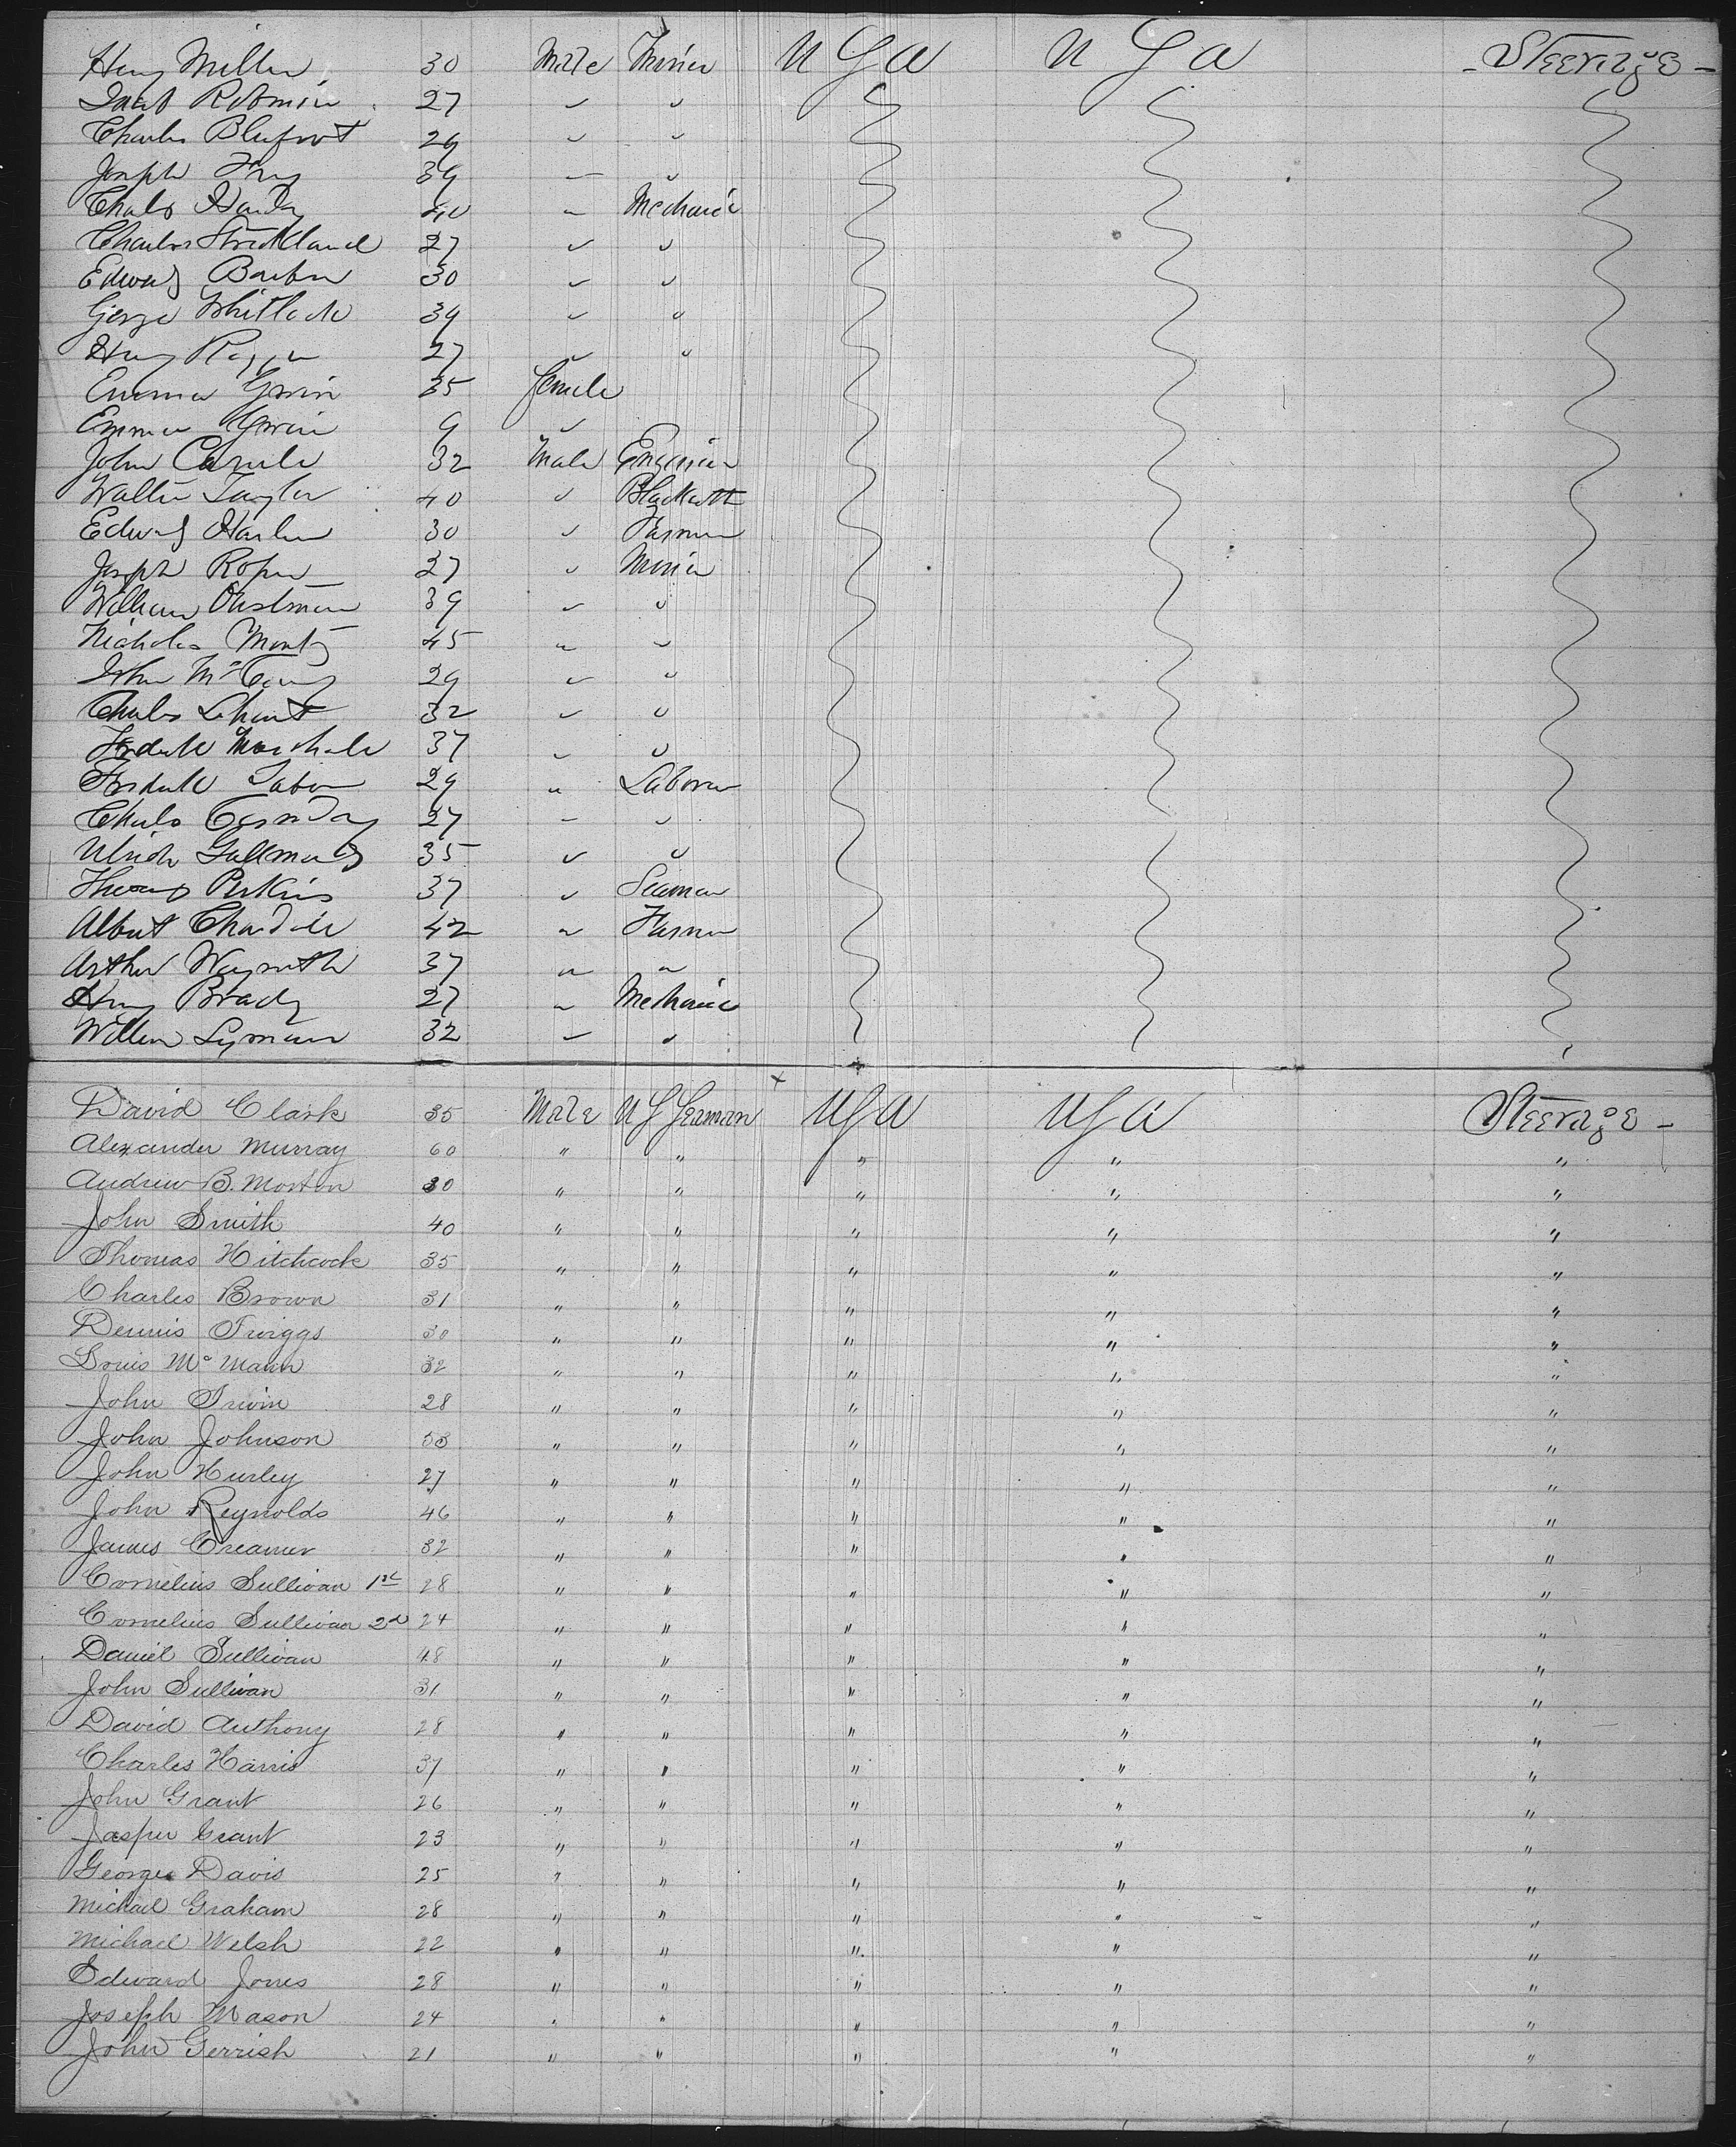 Henry Miller 30 Male Miner U S A U S A - Steerage -
27 〃 〃
Charles 29 〃 〃
Joseph Fry 39 〃 〃
Charls Hardy 40 〃 Mechanic
Charles Strickland 27 〃 〃
Edward Barber 30 〃 〃
George Whitlock 39 〃 〃
Henry 27 〃 〃
Emma 35 female
Emma 9 〃
John 32 Male Engineer
Walter Taylor 40 〃 Blacksmith
Edward Harlen 30 〃 Farmer
Joseph Roper 27 〃 Miner
William 39 〃 〃
Nicholas 45 〃 〃
John 29 〃 〃
Charles 32 〃 〃
Fredrick Marshall 37 〃 〃
Fredrick Tabor 29 〃 Laborer
Charls 27 〃 〃
Ulrich 35 〃 〃
Thomas Perkins 37 〃 Seaman
Albert 42 〃 Farmer
Arthur 37 〃 〃
Henry Brady 27 〃 Mechanic
William Lyman 32 〃 〃
David Clark 35 Male U S Seaman U S A U S A Steerage -
Alexander Murray 60 〃 〃 〃 〃 〃
Andrew B. Morton 30 〃 〃 〃 〃 〃
John Smith 40 〃 〃 〃 〃 〃
Thomas Hitchcock 35 〃 〃 〃 〃 〃
Charles Brown 31 〃 〃 〃 〃 〃
Dennis Twiggs 30 〃 〃 〃 〃 〃
Louis Mc Mann 32 〃 〃 〃 〃 〃
John Irwin 28 〃 〃 〃 〃 〃
John Johnson 53 〃 〃 〃 〃 〃
John Hurley 27 〃 〃 〃 〃 〃
John Reynolds 46 〃 〃 〃 〃 〃
James Creamer 32 〃 〃 〃 〃 〃
Cornelius Sullivan 1st 28 〃 〃 〃 〃 〃
Cornelius Sullivan 2d 24 〃 〃 〃 〃 〃
Daniel Sullivan 48 〃 〃 〃 〃 〃
John Sullivan 31 〃 〃 〃 〃 〃
David Anthony 28 〃 〃 〃 〃 〃
Charles Harris 37 〃 〃 〃 〃 〃
John Grant 26 〃 〃 〃 〃 〃
Jasper Grant 23 〃 〃 〃 〃 〃
George Davis 25 〃 〃 〃 〃 〃
Michael Graham 28 〃 〃 〃 〃 〃
Michael Welsh 22 〃 〃 〃 〃 〃
Edward Jones 28 〃 〃 〃 〃 〃
Joseph Mason 24 〃 〃 〃 〃 〃
John Gerrish 21 〃 〃 〃 〃 〃